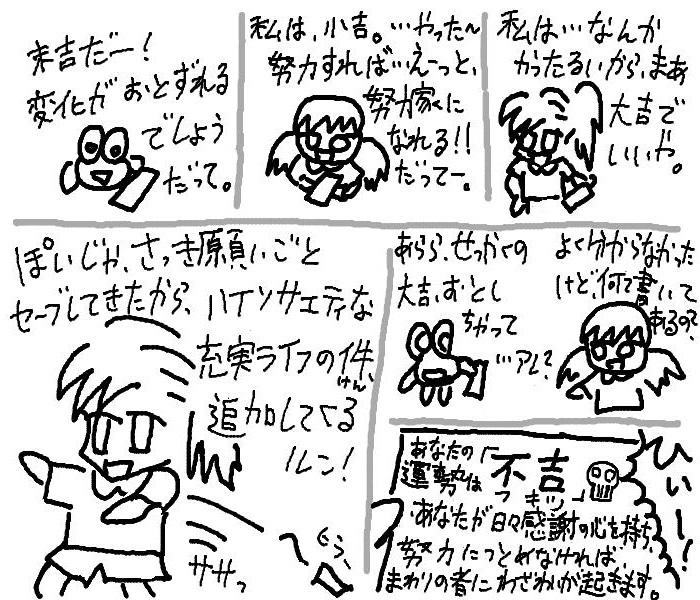 末吉だー!
変化がおとずれる
でしょう
だって。
私は、小吉。…やった〜
努力すれば…えーっと、
努力家くに
なれる!!
だってー。
私は…なんか
かったるいから、まあ
大吉で
いいや。
ぽいじゃ、さっき原頁いごと
セーブしてきたから、ハイソサエティな
充実ライフの件、
けん
追加してくる
ルン!
ササっ
くら、
あらら、せっかくの
大吉、おとし
ちゃって
…アレ?
よく分からなかった
けど、何て書いて
あるの?
あなたの
運勢は
不吉
フキツ
あなたが日々感謝の心を持ち、
努力につとめなければ、
まわりの者にわざわいが起きます。
ひぃー!